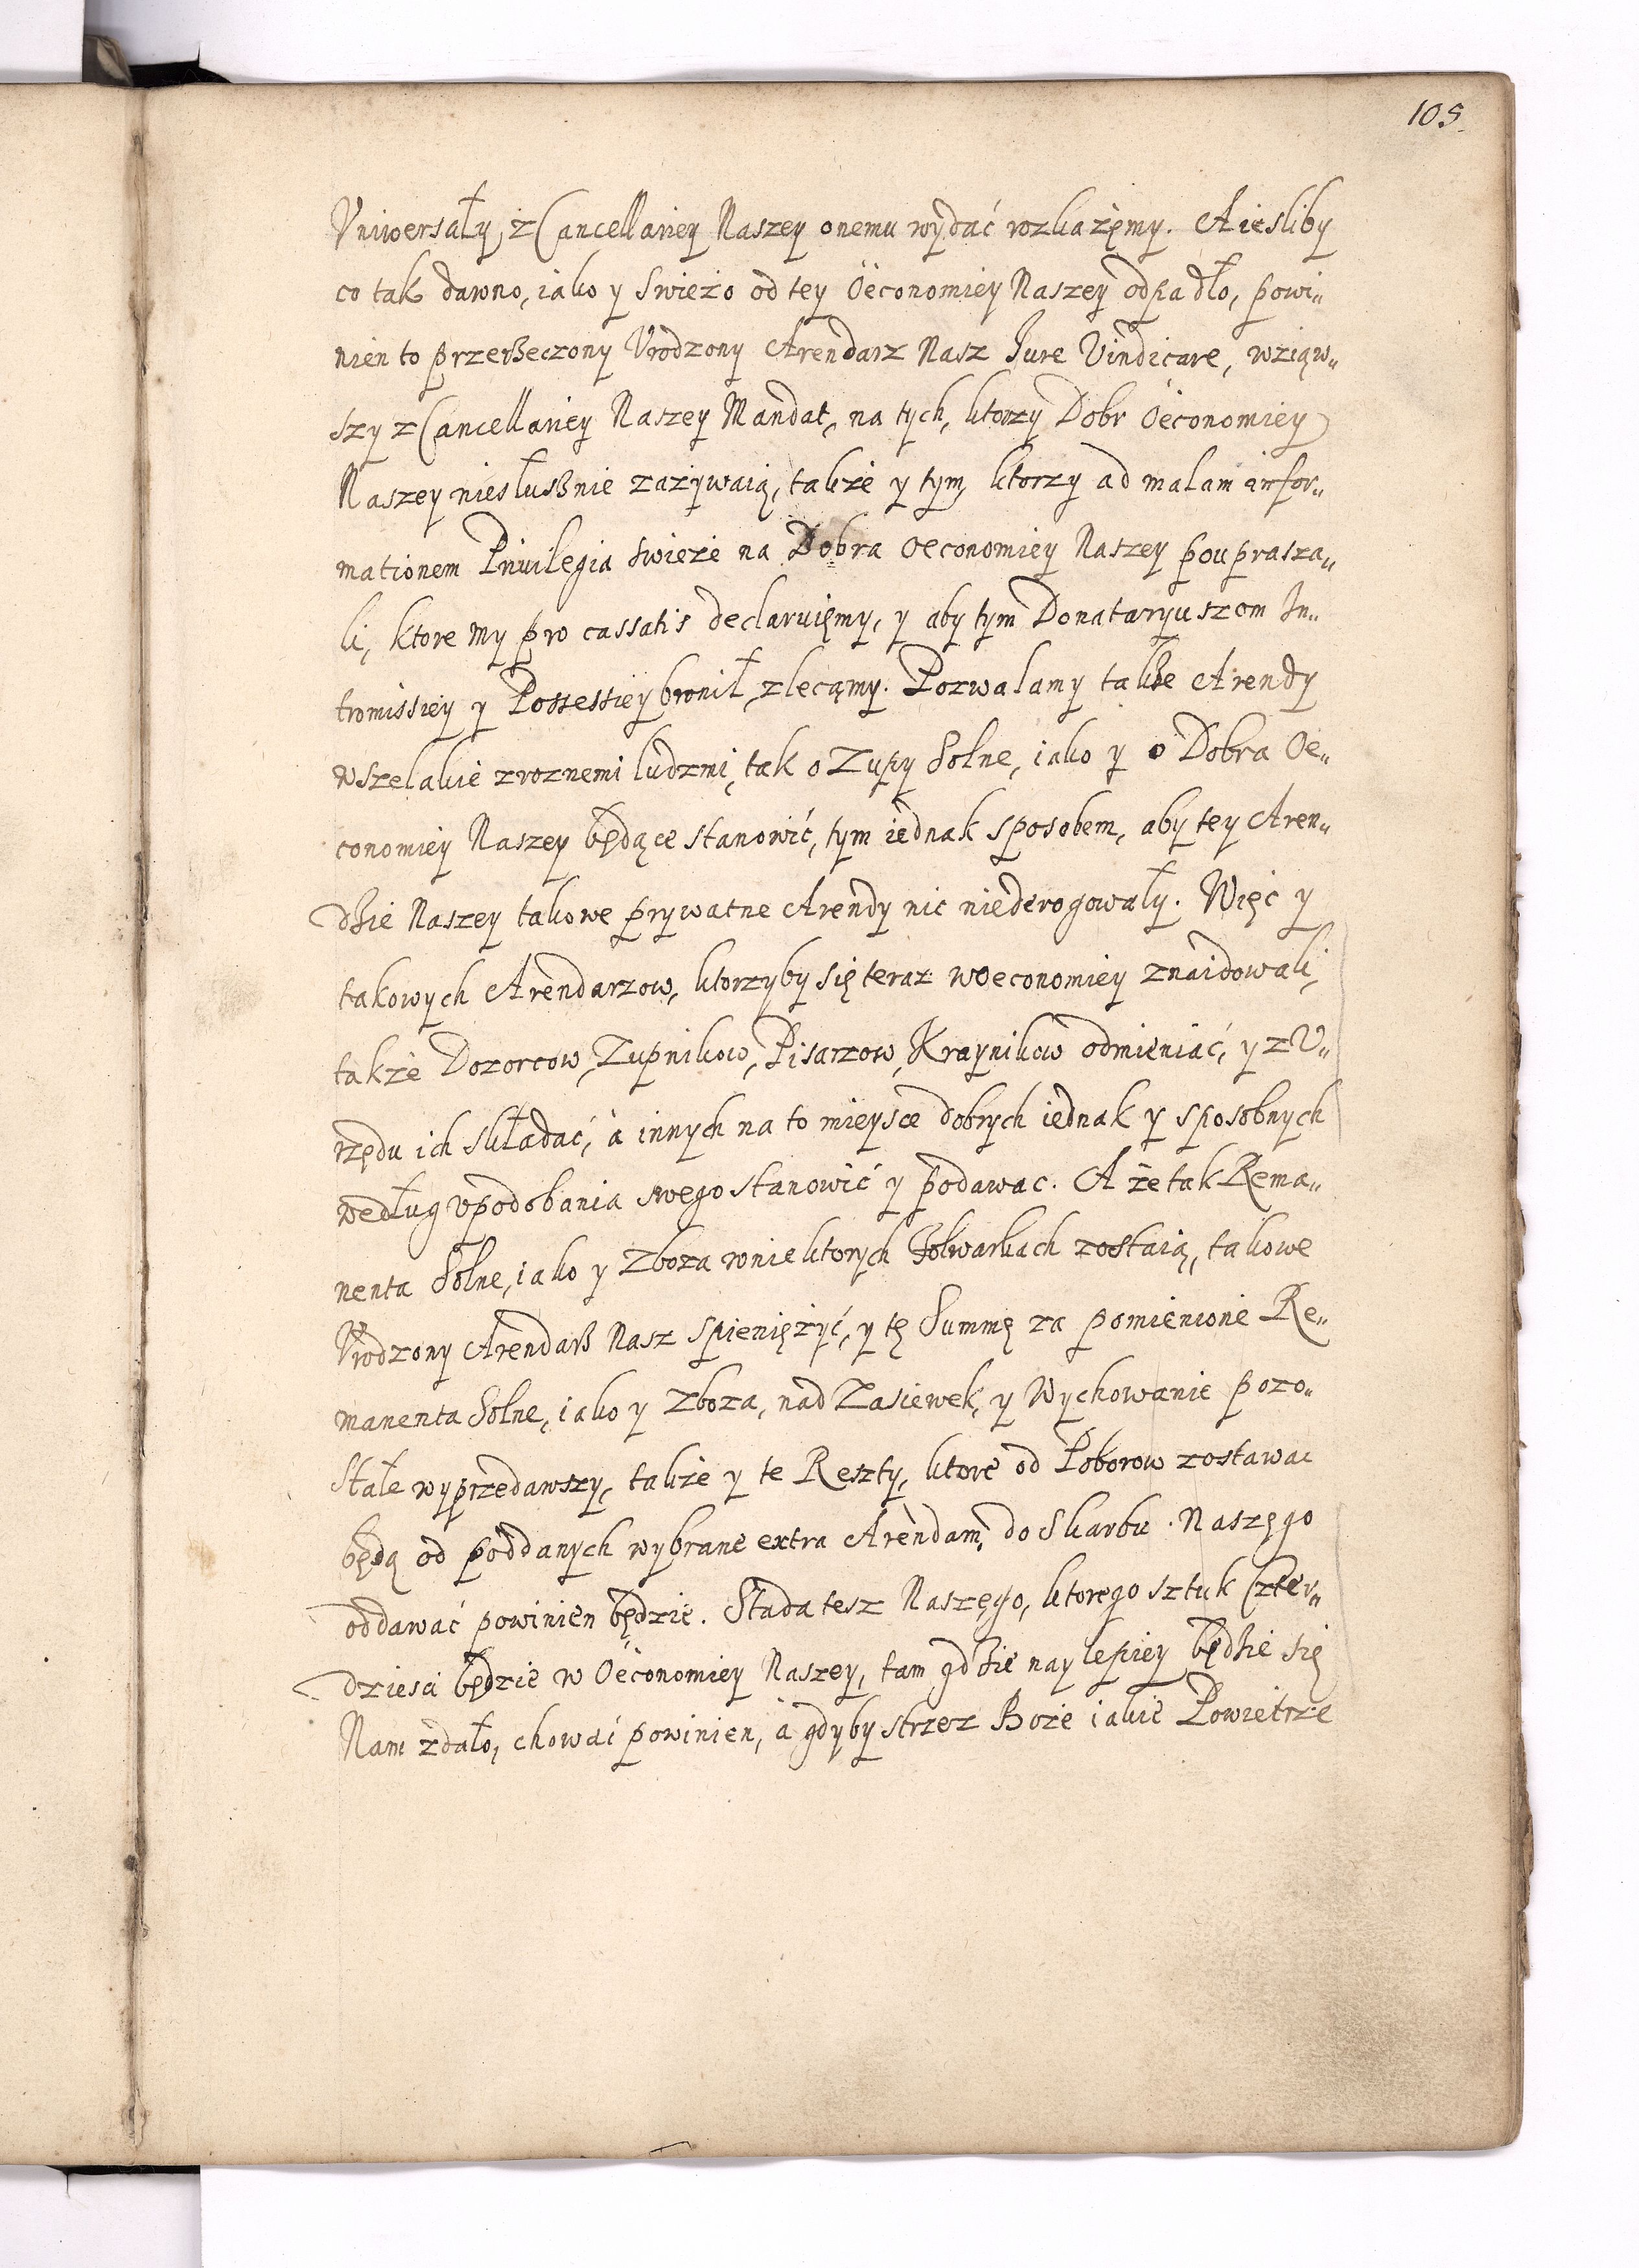 105.
Vniwersały z Cancellariey Naszey onemu wydać rozkażęmy. A iesliby
co tak dawno, iako y swieżo od tey Oeconomiey Naszey odpadło, powi„
nien to przerßeczony Vrodzony Arendarz Nasz Jure Vindicare, wziąw„
szy z Cancellariey Naszey Mandat, na tych, ktorzy Dobr Oeconomiey
Naszey niesłußnie zazywaią, także y tym, ktorzy ad malam infor„
mationem Priuilegia swieże na Dobra Oeconomiey Naszey poupraszа„
li, ktore my pro cassatis declaruięmy, y aby tym Donataryuszom In„
tromissiey y Possessiey bronił, zlecąmy. Pozwalamy także Arendy
wszelakie z roznemi ludzmi, tak o Zupy Solne, iako y o Dobra Oe„
conomiey Naszey będące stanowić, tym iednak sposobem, aby tey Aren„
dzie Naszey takowe prywatne Arendy nic niederogowały. Więc y
takowych Arendarzow, ktorzyby się teraz w oeconomiey znaidowali,
także Dozorcow, Zupnikow, Pisarzow, Kraynikow odmieniać, y z V„
rzędu ich składać, à innych na to mieysce dobrych iednak y sposobnych
według vpodobania swego stanowić y podawac. A że tak Rema„
nenta Solne, iako y Zboza w niektorych Folwarkach zostaią, takowe
Vrodzony Arendarß Nasz spieniężyć, y tę Summę za pomienione Re„
manenta Solne, iako y Zboza, nad Zasiewek, y Wychowanie pozo„
stałe wyprzedawszy, także y te Reszty, ktore od Poborow zostawac
będą od poddanych wybrane extra Arendam, do Skarbu Naszęgo
oddawać powinien będzie. Stada tesz Naszęgo, ktorego sztuk Czter„
dziesci będzie w Oeconomiey Naszey, tam gdzie naylepiey będzie się
Nam zdało, chować powinien, à gdyby strzez Boże iakie Powietrze